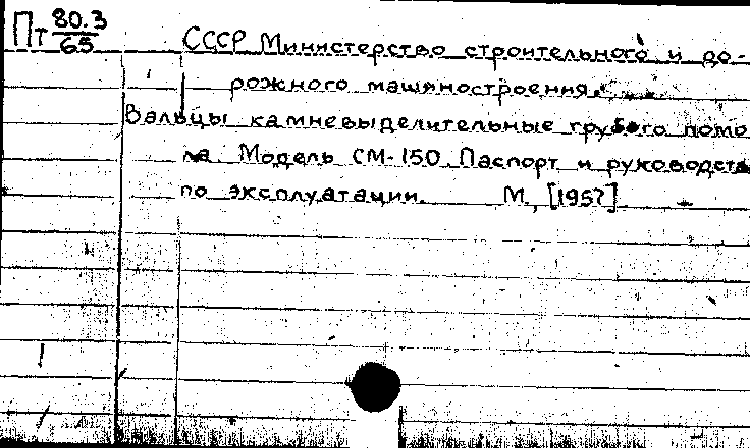 Пт 80.3
65
СССР Министерство строительного и до-
рожного машиностроения.
Вальцы камневыделительные грубого помо
ла Модель СМ-150 Паспорт и руководств
по эксплуатации. М, [1957]